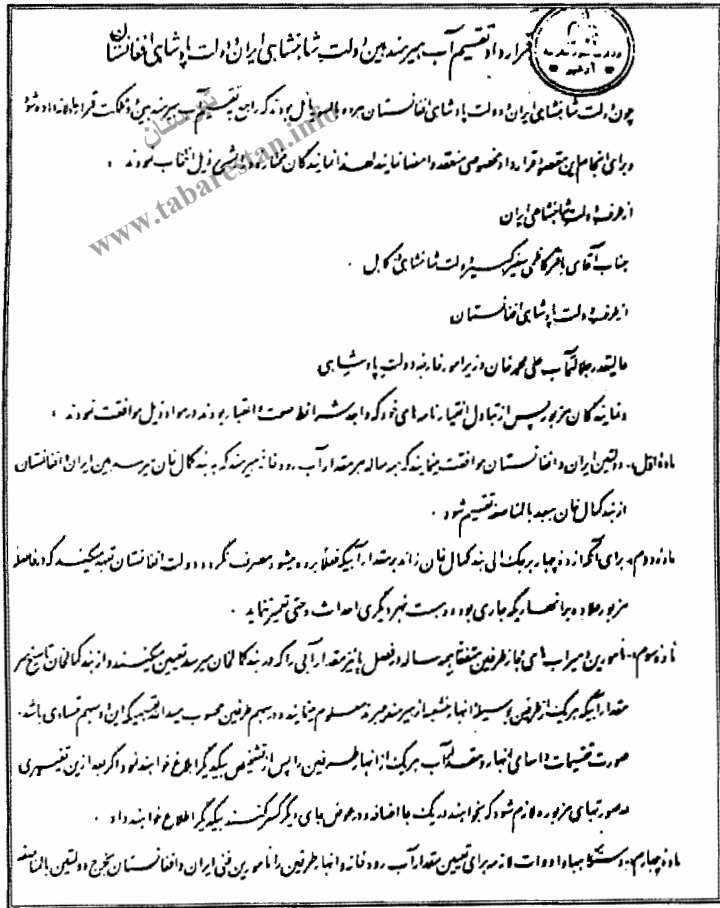 قرارداد تقسیم آب هیرمند بین دولت شاهنشاهی ایران و دولت پادشاهی افغانستان
چون دولت شاهنشاهی ایران و دولت پادشاهی افغانستان هر دو مایل بودند که راجع به تقسیم آب هیرمند بین دو مملکت قرار عادلانه داده شود
و برای انجام این مقصود قرارداد مخصوصی منعقد و امضا نمایند لهذا نمایندگان مختار خود را بشرح ذیل انتخاب نمودند :
از طرف دولت شاهنشاهی ایران
جناب آقای باقر کاظمی سفیر کبیر دولت شاهنشاهی کابل .
از طرف دولت پادشاهی افغانستان
عالیقدر جلالتمآب علی محمد خان وزیر امور خارجه دولت پادشاهی
نمایندگان مزبور پس از تبادل اختیارنامه های خود که واجد شرائط صحت و اعتبار بودند در مواد ذیل موافقت نمودند :
ماده اول - دولتین ایران و افغانستان موافقت مینمایند که همه ساله هر مقدار آب رودخانه هیرمند که به بند کمال خان میرسد بین ایران و افغانستان
از بند کمال خان ببعد بالمناصفه تقسیم شود .
ماده دوم - برای آنکه از ده چهار برجک الی بند کمال خان زائد بر مقدار آبیکه فعلاً برده میشود مصرف نگردد دولت افغانستان تعهد میکند که در فاصله
مزبور علاوه بر انهاریکه جاری بوده و هست نهر دیگری احداث و حتی تعمیر ننماید .
ماده سوم - مأمورین و میراب های مجاز طرفین متفقاً همه ساله در فصل پائیز مقدار آبی را که در بند کمالخان میرسد تعیین میکنند و از بند کمالخان تا سیخ سر
مقدار آبیکه هر یک از طرفین بوسیله انهار منشعبه از هیرمند میبرند معلوم مینمایند و در سهم طرفین محسوب میدارند تقسیمیکه این دو سهم متساوی باشد.
صورت تقسیمات و اسامی انهار و مقدار آب هر یک از انهار طرفین را پس از تشخیص بیکدیگر ابلاغ خواهند نمود اگر بعد از این تغییری
در صورتهای مزبوره لازم شود که بخواهند در یک جا اضافه و در عوض جای دیگر کسر کنند بیکدیگر اطلاع خواهند داد .
ماده چهارم - دستگاهها و ادوات لازمه برای تعیین مقدار آب رودخانه و انهار طرفین را مأمورین فنی ایران و افغانستان بخرج دولتین بالمناصفه
آرشیو
تبرستان
www.tabarestan.info